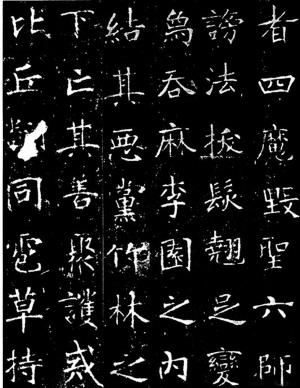 者四魔毀聖六師
謗法拔髮翹足變
象吞麻李園之內
結其惡黨竹林之
下亡其善聚護戒
比丘同雹草持